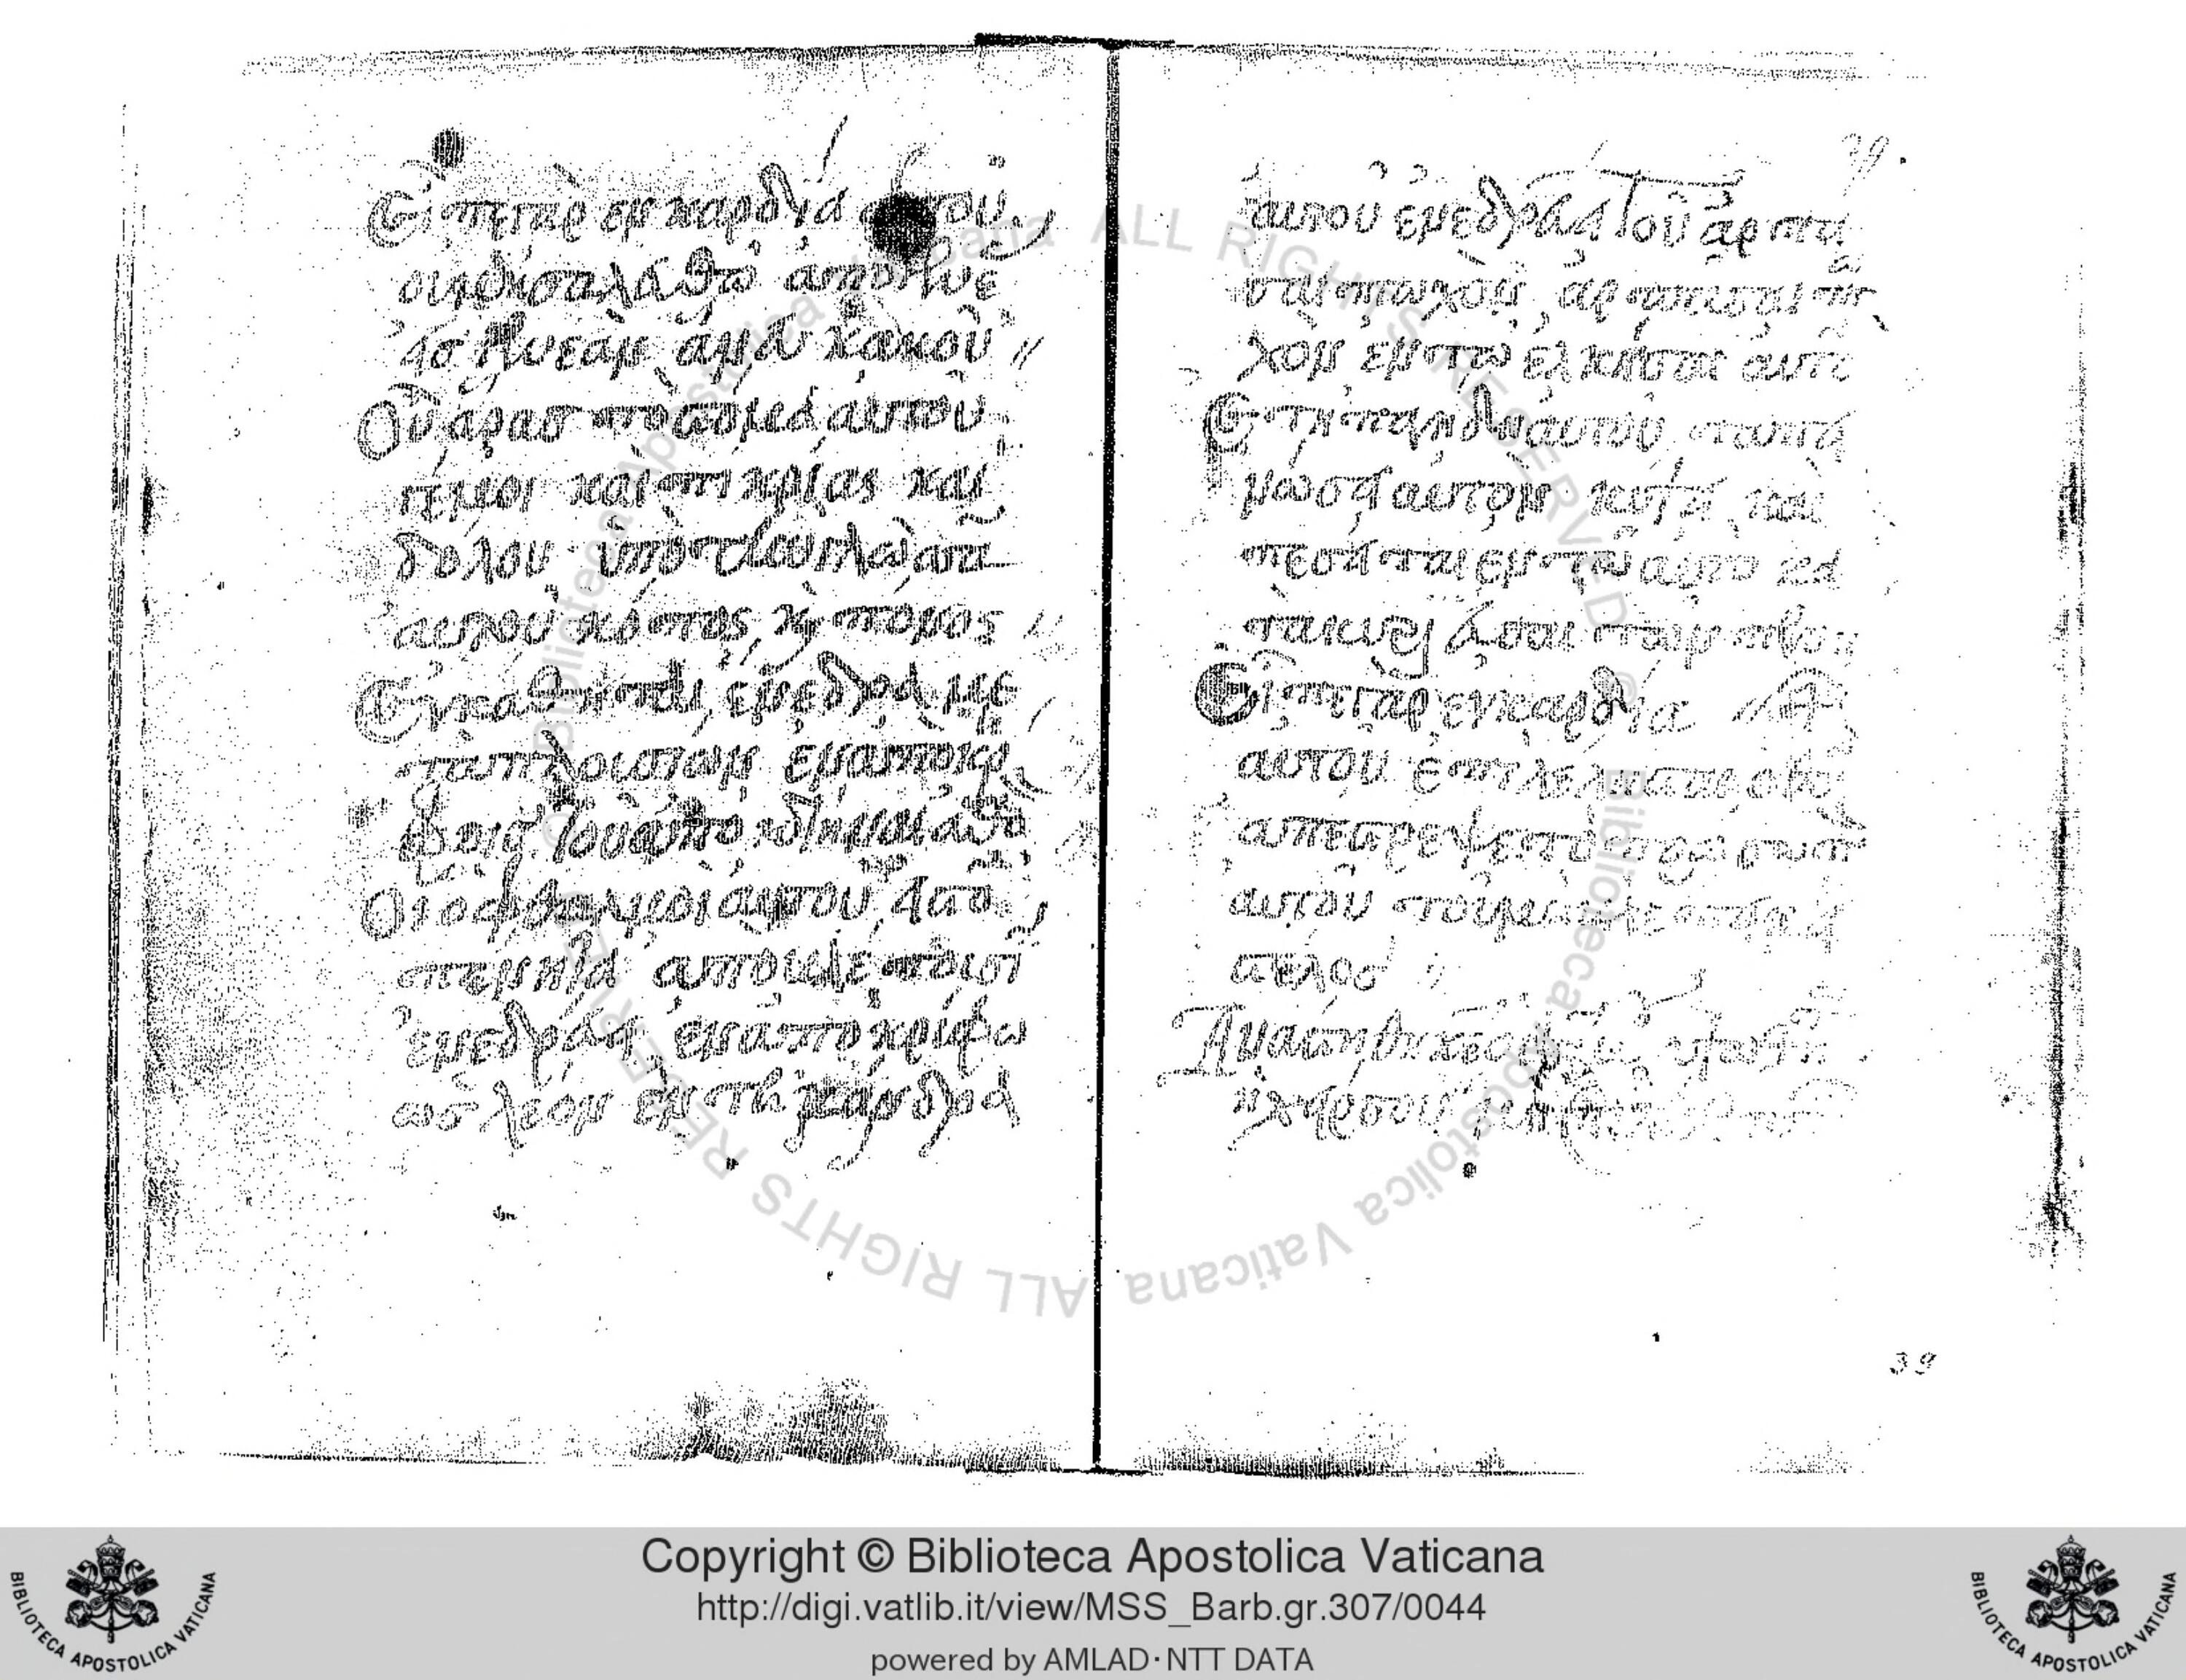 Εἶπε γὰρ ἐν καρδία αὐτοῦ
οὐ μὴ σαλευθῶ ἀπὸ γενε
ᾶσ εἰς γενεὰν ἄνευ κακοῦ
Οὗ ἀρᾶσ τὸ στόμα αὐτοῦ
γέμει καὶ πικρίας καὶ
δόλου ὑπὸ τὴν γλῶσσα
αὐτοῦ κόπος κ πόνος
Ἐνκάθηται ἐνέδρα με
τὰ πλουσίων ἐν ἀποκρ
ύφοισ τοῦ ἀποκτεῖναι ἀθῶ
Οἱ ὀφθαλμοὶ αὐτοῦ εἰσ τὸ
πένητα ἀποβλέπουσι
ἐνεδρεύει ἐν ἀποκρύφω
ὡσ λέον ἐν τῆ μάνδρα
αὐτοῦ ἐνεδρεύει τοῦ ἁρπά
σαι πτωχὸν ἁρπάσαι πτω
χὸν ἐν τῶ ἑλκῦσαι αὐτὸ
Ἐν τῆ παγίδι αὐτοῦ ταπει
νώσει αὐτὸν κύψει καὶ
πεσεῖται ἐν τῶ αὐτὸ κα
τακυριεῦσαι τῶν πενή
Εἶπε γὰρ ἐν καρδία
αὐτοῦ ἐπιλέλησται ὁ θσ
ἀπέστρεψε τὸ πρόσωπ
αὐτοῦ τοῦ μὴ βλέπειν εἰ
σ τέλοσ
Ἀνάστηθι κε ὁ θσ μου ὑψωθήτω
ἡ χείρ σου
39
Copyright © Biblioteca Apostolica Vaticana
http://digi.vatlib.it/view/MSS_Barb.gr.307/0044
powered by AMLAD·NTT DATA
BIBLIOTECA APOSTOLICA VATICANA
BIBLIOTECA APOSTOLICA VATICANA